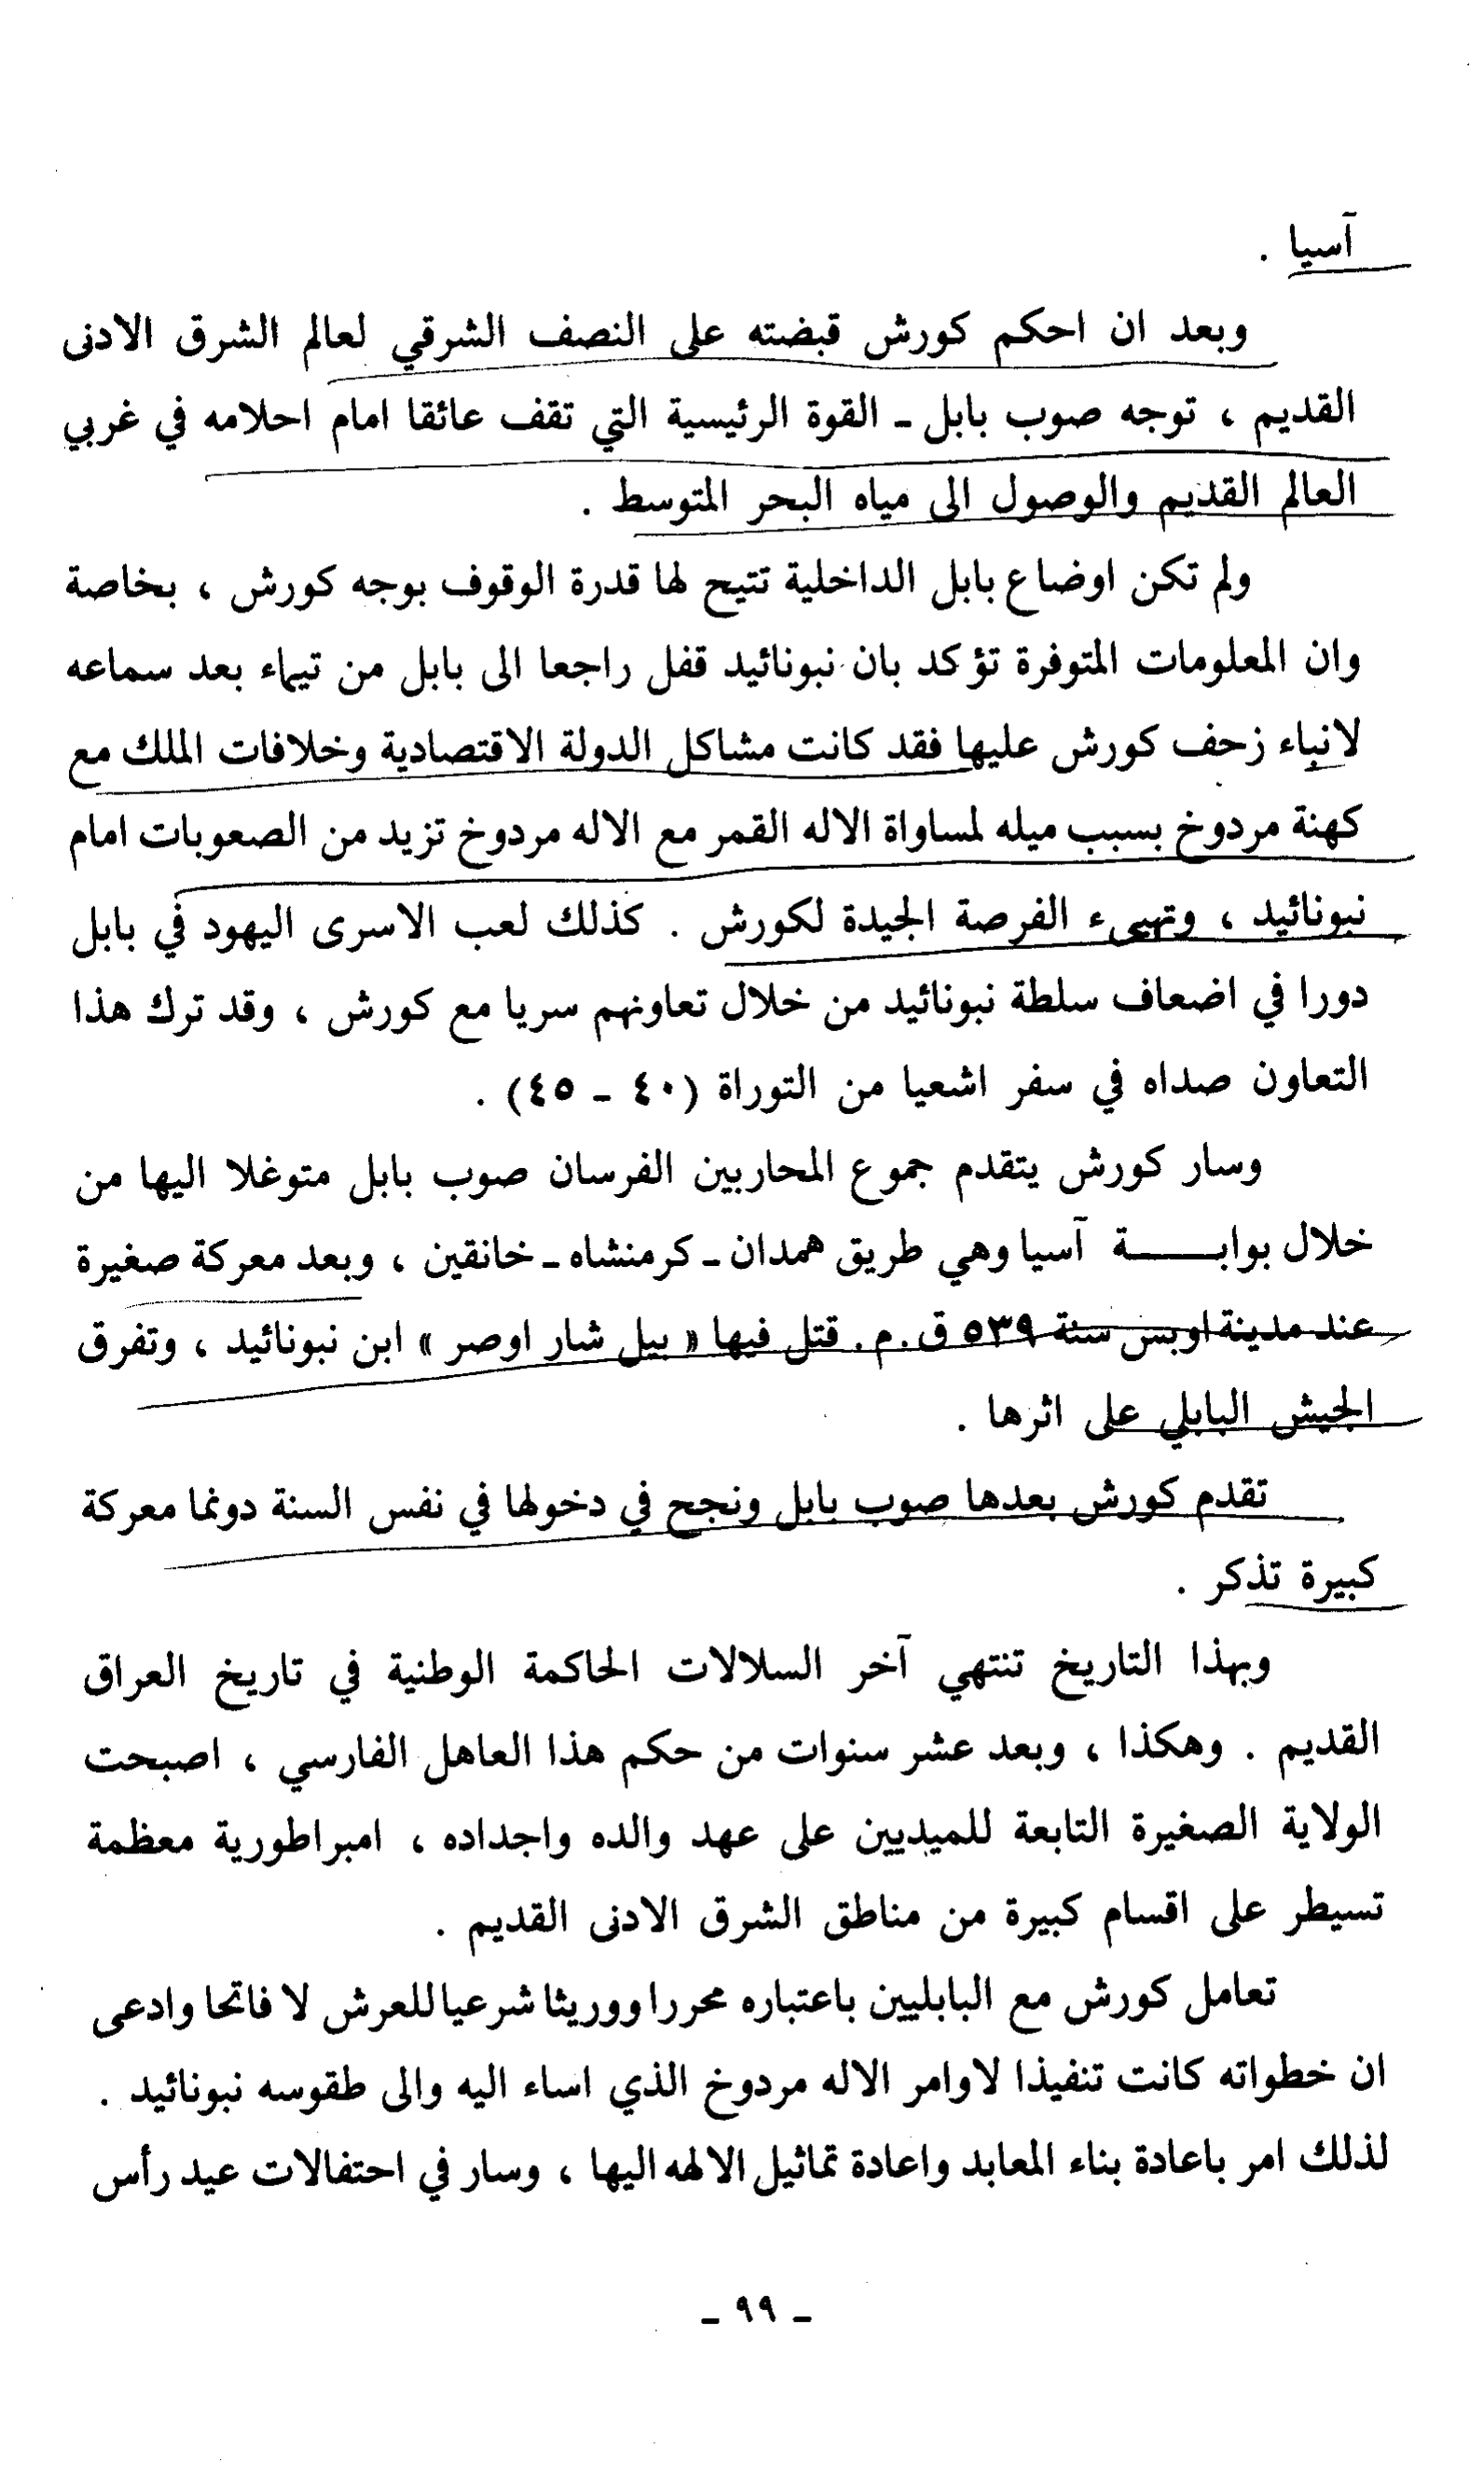 آسيا .
وبعد ان احكم كورش قبضته على النصف الشرقي لعالم الشرق الادنى
القديم ، توجه صوب بابل ـ القوة الرئيسية التي تقف عائقا امام احلامه في غربي
العالم القديم والوصول الى مياه البحر المتوسط .
ولم تكن اوضاع بابل الداخلية تتيح لها قدرة الوقوف بوجه كورش ، بخاصة
وان المعلومات المتوفرة تؤكد بان نبونائيد قفل راجعا الى بابل من تيماء بعد سماعه
لانباء زحف كورش عليها فقد كانت مشاكل الدولة الاقتصادية وخلافات الملك مع
كهنة مردوخ بسبب ميله لمساواة الاله القمر مع الاله مردوخ تزيد من الصعوبات امام
نبونائيد ، وتهيىء الفرصة الجيدة لكورش . كذلك لعب الاسرى اليهود في بابل
دورا في اضعاف سلطة نبونائيد من خلال تعاونهم سريا مع كورش ، وقد ترك هذا
التعاون صداه في سفر اشعيا من التوراة (٤٠ - ٤٥) .
وسار كورش يتقدم جموع المحاربين الفرسان صوب بابل متوغلا اليها من
خلال بوابـــــة آسيا وهي طريق همدان ـ كرمنشاه ـ خانقين ، وبعد معركة صغيرة
عند مدينة اوبس سنة ٥٣٩ ق.م. قتل فيها « بيل شار اوصر » ابن نبونائيد ، وتفرق
الجيش البابلي على اثرها .
تقدم كورش بعدها صوب بابل ونجح في دخولها في نفس السنة دونما معركة
كبيرة تذكر .
وبهذا التاريخ تنتهي آخر السلالات الحاكمة الوطنية في تاريخ العراق
القديم . وهكذا ، وبعد عشر سنوات من حكم هذا العاهل الفارسي ، اصبحت
الولاية الصغيرة التابعة للميديين على عهد والده واجداده ، امبراطورية معظمة
تسيطر على اقسام كبيرة من مناطق الشرق الادنى القديم .
تعامل كورش مع البابليين باعتباره محررا ووريثا شرعيا للعرش لا فاتحا وادعى
ان خطواته كانت تنفيذا لاوامر الاله مردوخ الذي اساء اليه والى طقوسه نبونائيد .
لذلك امر باعادة بناء المعابد واعادة تماثيل الالهه اليها ، وسار في احتفالات عيد رأس
ـ ٩٩ ـ